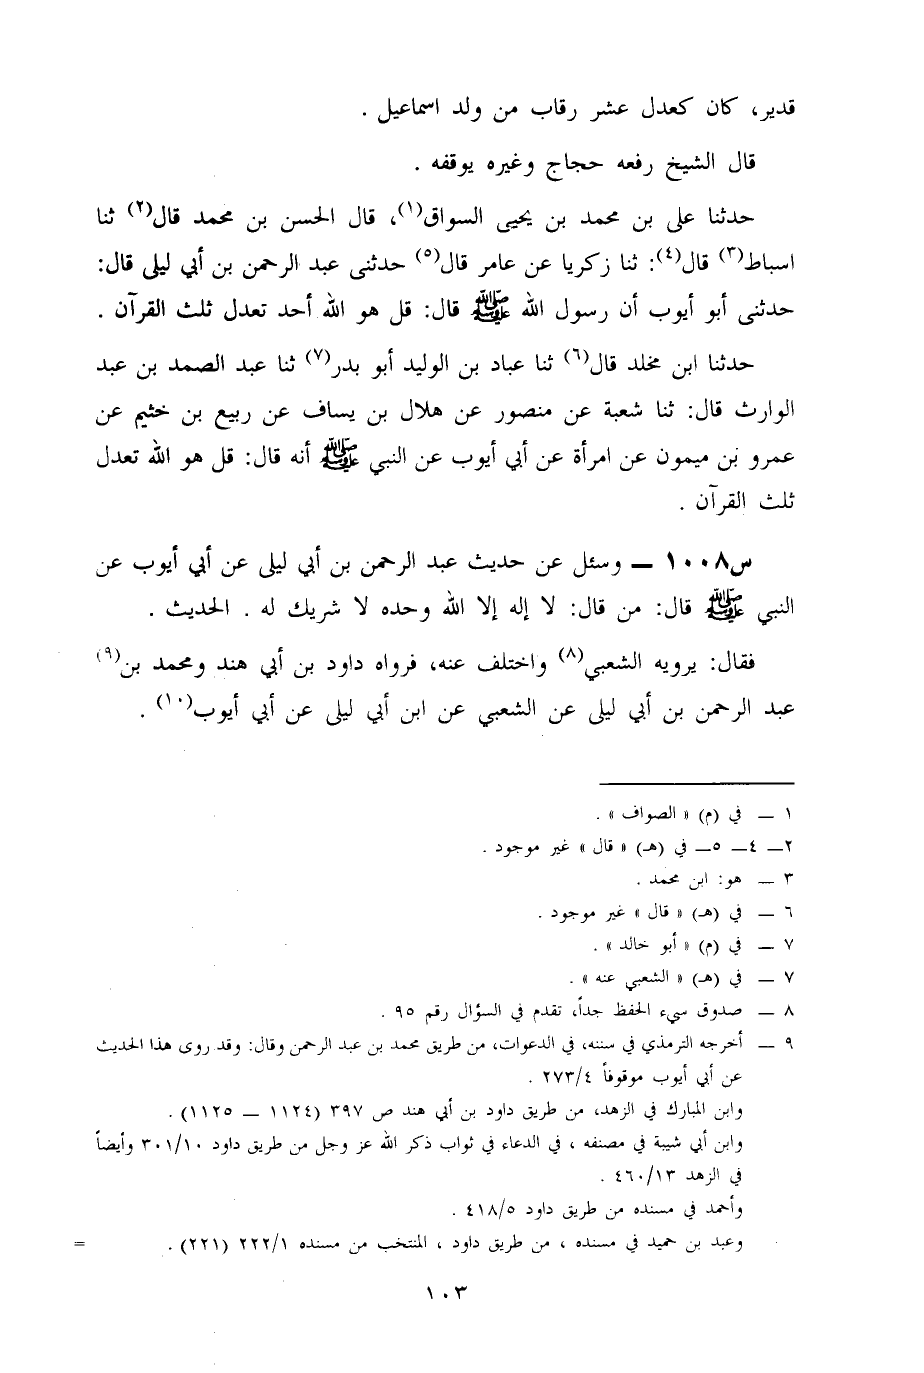 قدير، كان كعدل عشر رقاب من ولد اسماعيل .
قال الشيخ رفعه حجاج وغيره يوقفه .
حدثنا على بن محمد بن يحيى السواق(١)، قال الحسن بن محمد قال(٢) ثنا
اسباط(٣) قال(٤): ثنا زكريا عن عامر قال(٥) حدثنى عبد الرحمن بن أبي ليلى قال:
حدثنى أبو أيوب أن رسول الله ﷺ قال: قل هو الله أحد تعدل ثلث القرآن .
حدثنا ابن مخلد قال(٦) ثنا عباد بن الوليد أبو بدر(٧) ثنا عبد الصمد بن عبد
الوارث قال: ثنا شعبة عن منصور عن هلال بن يساف عن ربيع بن خثيم عن
عمرو بن ميمون عن امرأة عن أبي أيوب عن النبي ﷺ أنه قال: قل هو الله تعدل
ثلث القرآن .
س١٠٠٨ ــ وسئل عن حديث عبد الرحمن بن أبي ليلى عن أبي أيوب عن
النبي ﷺ قال: من قال: لا إله إلا الله وحده لا شريك له . الحديث .
فقال: يرويه الشعبي(٨) واختلف عنه، فرواه داود بن أبي هند ومحمد بن(٩)
عبد الرحمن بن أبي ليلى عن الشعبي عن ابن أبي ليلى عن أبي أيوب(١٠) .
١ ــ في (م) « الصواف » .
٢ــ ٤ــ ٥ــ في (هـ) « قال » غير موجود .
٣ ــ هو: ابن محمد .
٦ ــ في (هـ) « قال » غير موجود .
٧ ــ في (م) « أبو خالد » .
٧ ــ في (هـ) « الشعبي عنه » .
٨ ــ صدوق سيء الحفظ جداً، تقدم في السؤال رقم ٩٥ .
٩ ــ أخرجه الترمذي في سننه، في الدعوات، من طريق محمد بن عبد الرحمن وقال: وقد روى هذا الحديث
عن أبي أيوب موقوفاً ٢٧٣/٤ .
وابن المبارك في الزهد، من طريق داود بن أبي هند ص ٣٩٧ (١١٢٤ ــ ١١٢٥) .
وابن أبي شيبة في مصنفه ، في الدعاء في ثواب ذكر الله عز وجل من طريق داود ٣٠١/١٠ وأيضاً
في الزهد ٤٦٠/١٣ .
وأحمد في مسنده من طريق داود ٤١٨/٥ .
وعبد بن حميد في مسنده ، من طريق داود ، المنتخب من مسنده ٢٢٢/١ (٢٢١) . =
١٠٣